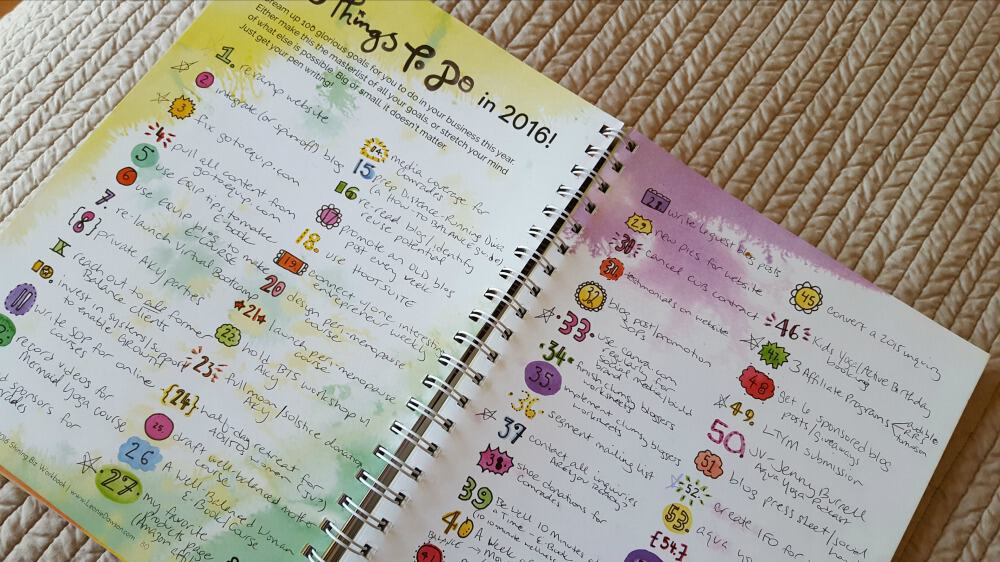 Things To Do in 2016!
Dream up 100 glorious goals for you to do in your business this year.
Either make this the masterlist of all your goals, or stretch your mind
of what else is possible. Big or small, it doesn't matter.
Just get your pen writing!
1. revamp website
2 integrate (or spinoff) blog
3 fix gotoequip.com
4 pull all content from
gotoequip.com
5 use EQUIP tips to make
E-Book
6 use EQUIP tips to make
E-COURSE
7 re-launch Virtual Bootcamp
{8} private Aky parties
9 reach out to all former
Balance clients
10. invest in system/support
to enable growth
11 write SOP for online
courses
record videos for
Mermaid yoga course
sponsors for
14. media coverage for
Comrades
15 prep Distance Running Dwa
(a How-To BALANCE guide)
16 re-read blog/identify
reuse potential
17 promote an OLD blog
post every week
18. use HOOTSUITE
19 connect w/one interesting
entrepreneur weekly
20 design peri-menopause
course
21 launch peri-menopause
course
22 hold BTS workshop in
Aky
23 full moon/solstice dancing
Aky
{24} half-day retreat for
25. draft well balanced mother
course
26 A Well Balanced Woman
E-Book/Course
27 My favorite
products page
(Amazon
2016 Shining Biz Workbook : www.LeonieDawson.com 80
28. write 6 guest blog posts
29. new pics for website
30 cancel CUB contract
31 testimonials on website
32 blog post/promotion
33. use Canva.com
regularly for
social media/build
brand
34 finish clumsy bloggers
worksheets
35. implement clumsy bloggers
worksheets
36 segment mailing list
37 contact all inquiries
38 shoe donations for
Comrades
39 Be Well 10 Minutes
a Time E-Book
40 10 minute wellness
A Week
41 BALANCE → Mo
45 convert a 2015 inquiring
46 Kids Yoga/Active Birthday
booking
47. 3 Affiliate Programs
Audible
Amazon
48 Get 6 sponsored blog
posts/giveaways
49. LTYM submission
50 JV - Jenny Burrell
Aqua Yoga/Podcast
51 blog press sleek/social
52. create IFO for
53. aqua yo
{54}